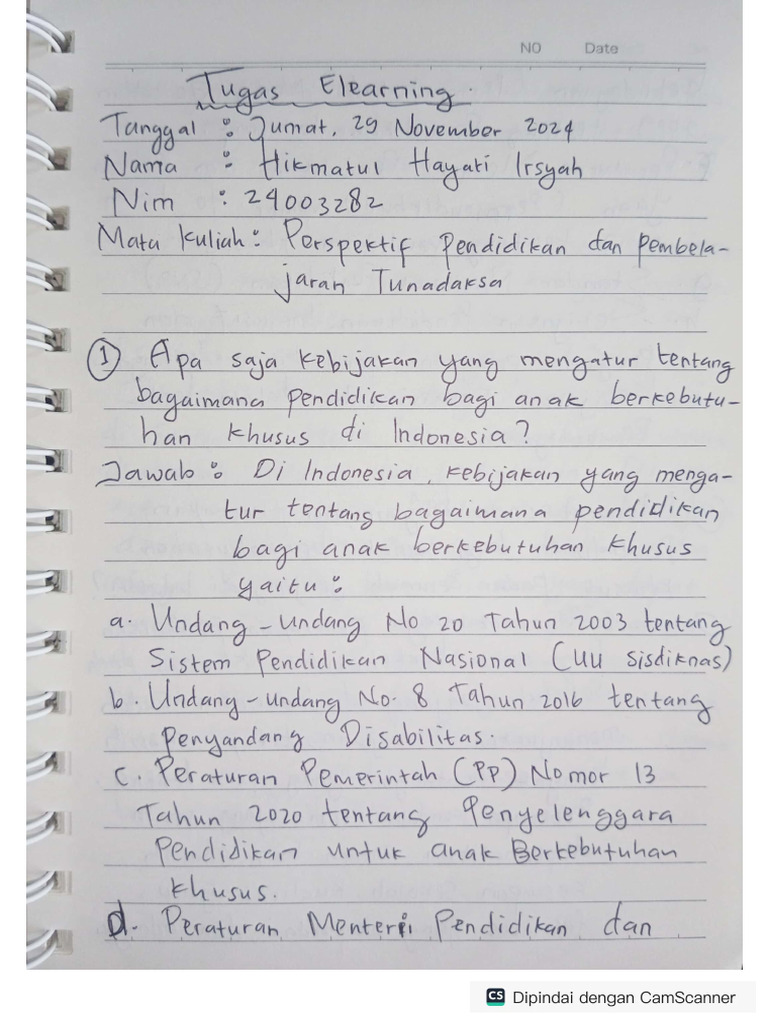 NO Date
Tugas Elearning.
Tanggal : Jumat, 29 November 2024
Nama : Hikmatul Hayati Irsyah
Nim : 24003282
Mata kuliah : Perspektif Pendidikan dan pembela-
jaran Tunadaksa
1 Apa saja kebijakan yang mengatur tentang
bagaimana pendidikan bagi anak berkebutu-
han khusus di Indonesia?
Jawab : Di Indonesia, kebijakan yang menga-
tur tentang bagaimana pendidikan
bagi anak berkebutuhan khusus
yaitu :
a. Undang-undang No 20 Tahun 2003 tentang
Sistem Pendidikan Nasional (UU Sisdiknas)
b. Undang-undang No. 8 Tahun 2016 tentang
penyandang Disabilitas.
c. Peraturan Pemerintah (PP) Nomor 13
Tahun 2020 tentang Penyelenggara
Pendidikan untuk anak Berkebutuhan
khusus.
d. Peraturan Menteri Pendidikan dan
CS Dipindai dengan CamScanner